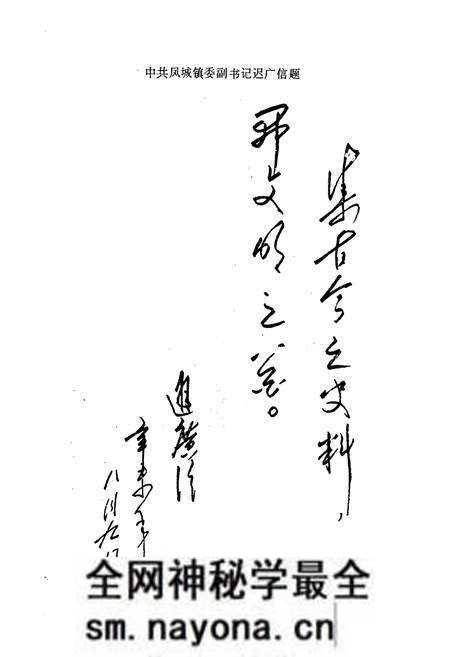 中共凤城镇委副书记迟广信题
集古今之史料，
文明之
遲廣信
辛未年
八月九
全网神秘学最全
sm.nayona.cn